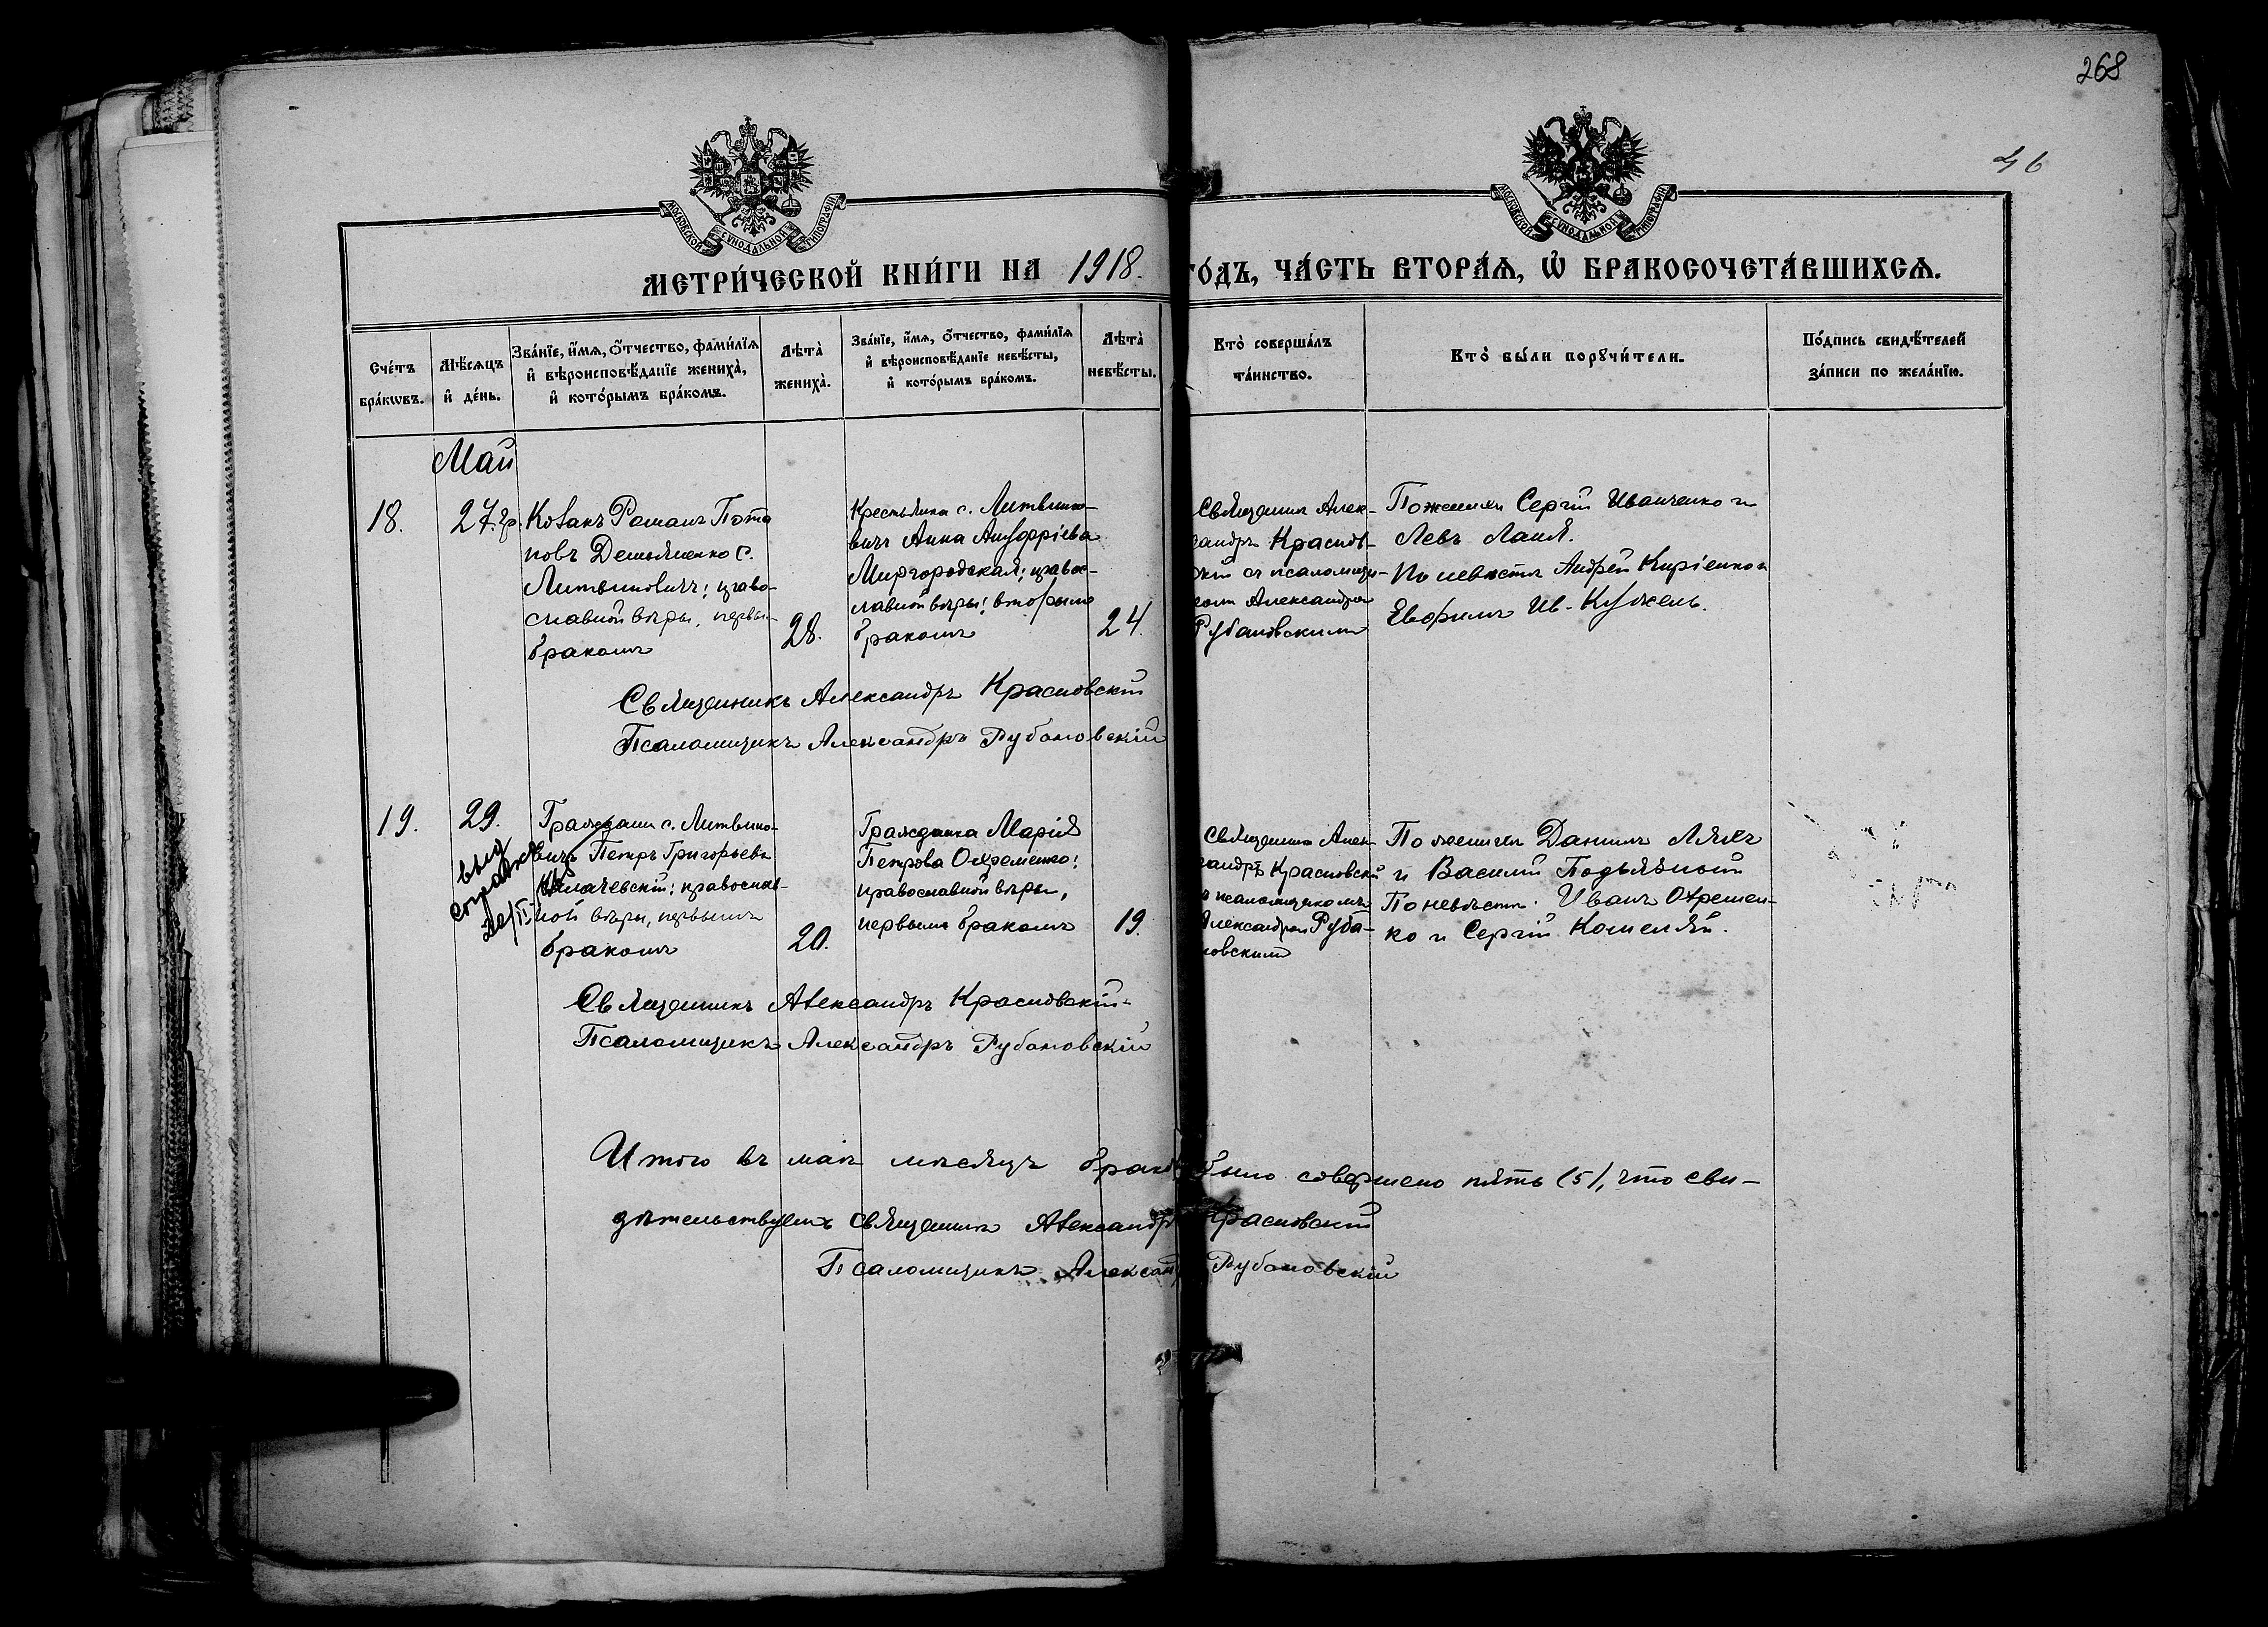 268
46
МОСКОВСКОЙ СѴНОДАЛЬНОЙ ТИПОГРАФІИ
МОСКОВСКОЙ СѴНОДАЛЬНОЙ ТИПОГРАФІИ
МЕТРИ́ЧЕСКОЙ КНИ́ГИ НА 1918. ГО́ДЪ, ЧА́СТЬ ВТОРА́Ѧ, Ѡ҆ БРАКОСОЧЕТА́ВШИХСѦ.
Сче́тъ бра́кωвъ.
Мѣ́сѧцъ и҆ де́нь.
Зва́нїе, и҆́мѧ, ѻ҆́тчество, фами́лїѧ и҆ вѣроисповѣ́данїе жениха̀, и҆ кото́рымъ бра́комъ.
Лѣта̀ жениха̀.
Зва́нїе, и҆́мѧ, ѻ҆́тчество, фами́лїѧ и҆ вѣроисповѣ́данїе невѣ́сты, и҆ кото́рымъ бра́комъ.
Лѣта̀ невѣ́сты.
Кто̀ соверша́лъ та́инство.
Кто̀ бы́ли порꙋчи́тели.
По́дпись свидѣ́телей за́писи по жела́нїю.
Май
18.
27.
Козакъ Романъ Пота
повъ Демьяненко с.
Литвиновичъ; право-
славной вѣры, первы-
бракомъ
28.
Крестьянка с. Литвино-
вичъ Анна Ануфріева
Миргородская; правос-
лавной вѣры; вторымъ
бракомъ
24.
Священник Алек-
сандръ Краснов-
скій съ псаломщи-
комъ Александром
Рубановскимъ
По женихѣ Сергій Иванченко и
Левъ Лапя.
По невѣстѣ Андрей Кирієнко и
Евфимъ Ив. Кужель.
Священникъ Александръ Красновскій
Псаломщикъ Александръ Рубановскій
19.
29.
Гражданин с. Литвино-
вичъ Петръ Григорьевъ
православ-
ной вѣры, первымъ
бракомъ
20.
Гражданка Марія
Петрова Охременко;
православной вѣры,
первымъ бракомъ
19.
Священникъ Алек-
сандръ Красновскій
съ псаломщикомъ
Александром Руба-
новскимъ
По женихѣ Даніилъ Ляхъ
и Василій
По невѣстѣ: Иванъ Охремен-
ко и Сергій Кошеляй.
Священникъ Александръ Красновскій
Псаломщикъ Александръ Рубановскій
Итого въ маѣ мѣсяцѣ браковъ было совершено пять (5), что сви-
дѣтельствуемъ Священникъ Александръ Красновскій
Псаломщикъ Александръ Рубановскій